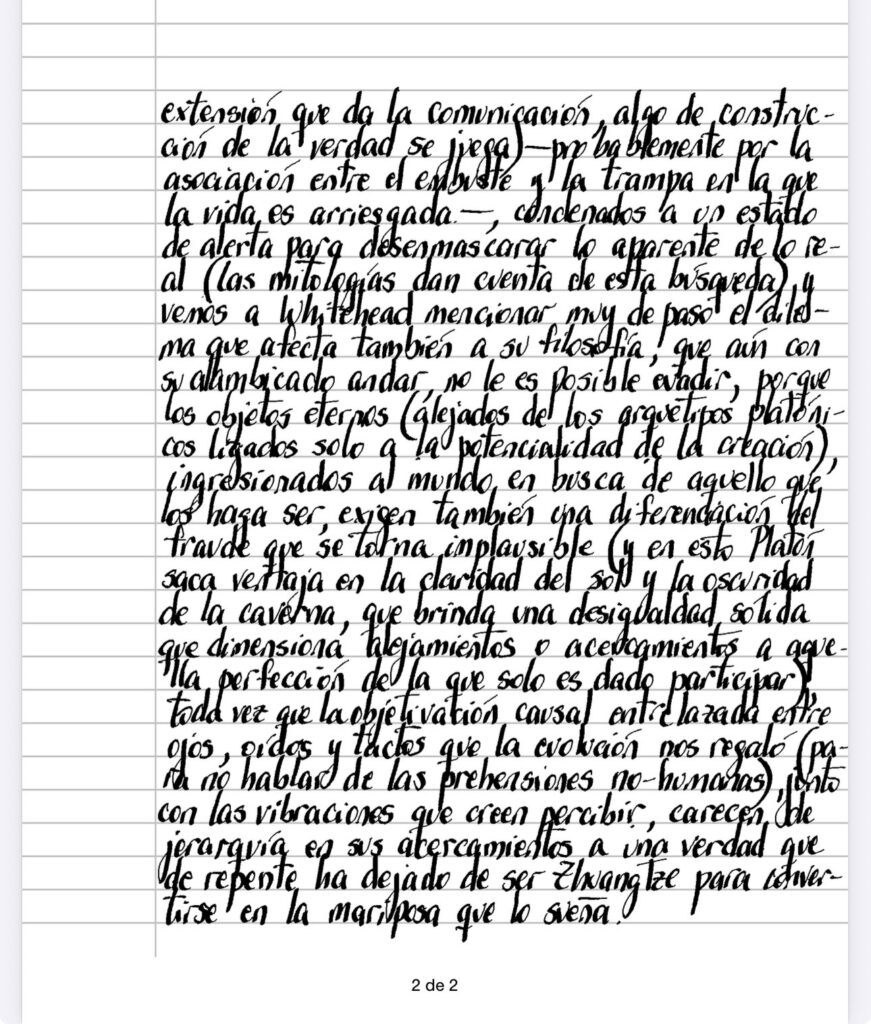 extensión que da la comunicación, algo de construc-
ción de la verdad se juega)—probablemente por la
asociación entre el embuste y la trampa en la que
la vida es arriesgada—, condenados a un estado
de alerta para desenmascarar lo aparente de lo re-
al (las mitologías dan cuenta de esta búsqueda), y
vemos a Whitehead mencionar muy de paso el dile-
ma que afecta también a su filosofía, que aún con
su alambicado andar, no le es posible evadir, porque
los objetos eternos (alejados de los arquetipos platóni-
cos ligados solo a la potencialidad de la creación),
ingresionados al mundo en busca de aquello que
los haga ser, exigen también una diferenciación del
fraude que se torna implausible (y en esto Platón
saca ventaja en la claridad del sol y la oscuridad
de la caverna, que brinda una desigualdad sólida
que dimensiona alejamientos o acercamientos a aque-
lla perfección de la que solo es dado participar),
toda vez que la objetivación causal entrelazada entre
ojos, oídos y tactos que la evolución nos regaló (pa-
ra no hablar de las prehensiones no-humanas), junto
con las vibraciones que creen percibir, carecen de
jerarquía en sus acercamientos a una verdad que
de repente ha dejado de ser Zhuangtze para conver-
tirse en la mariposa que lo sueña.
2 de 2